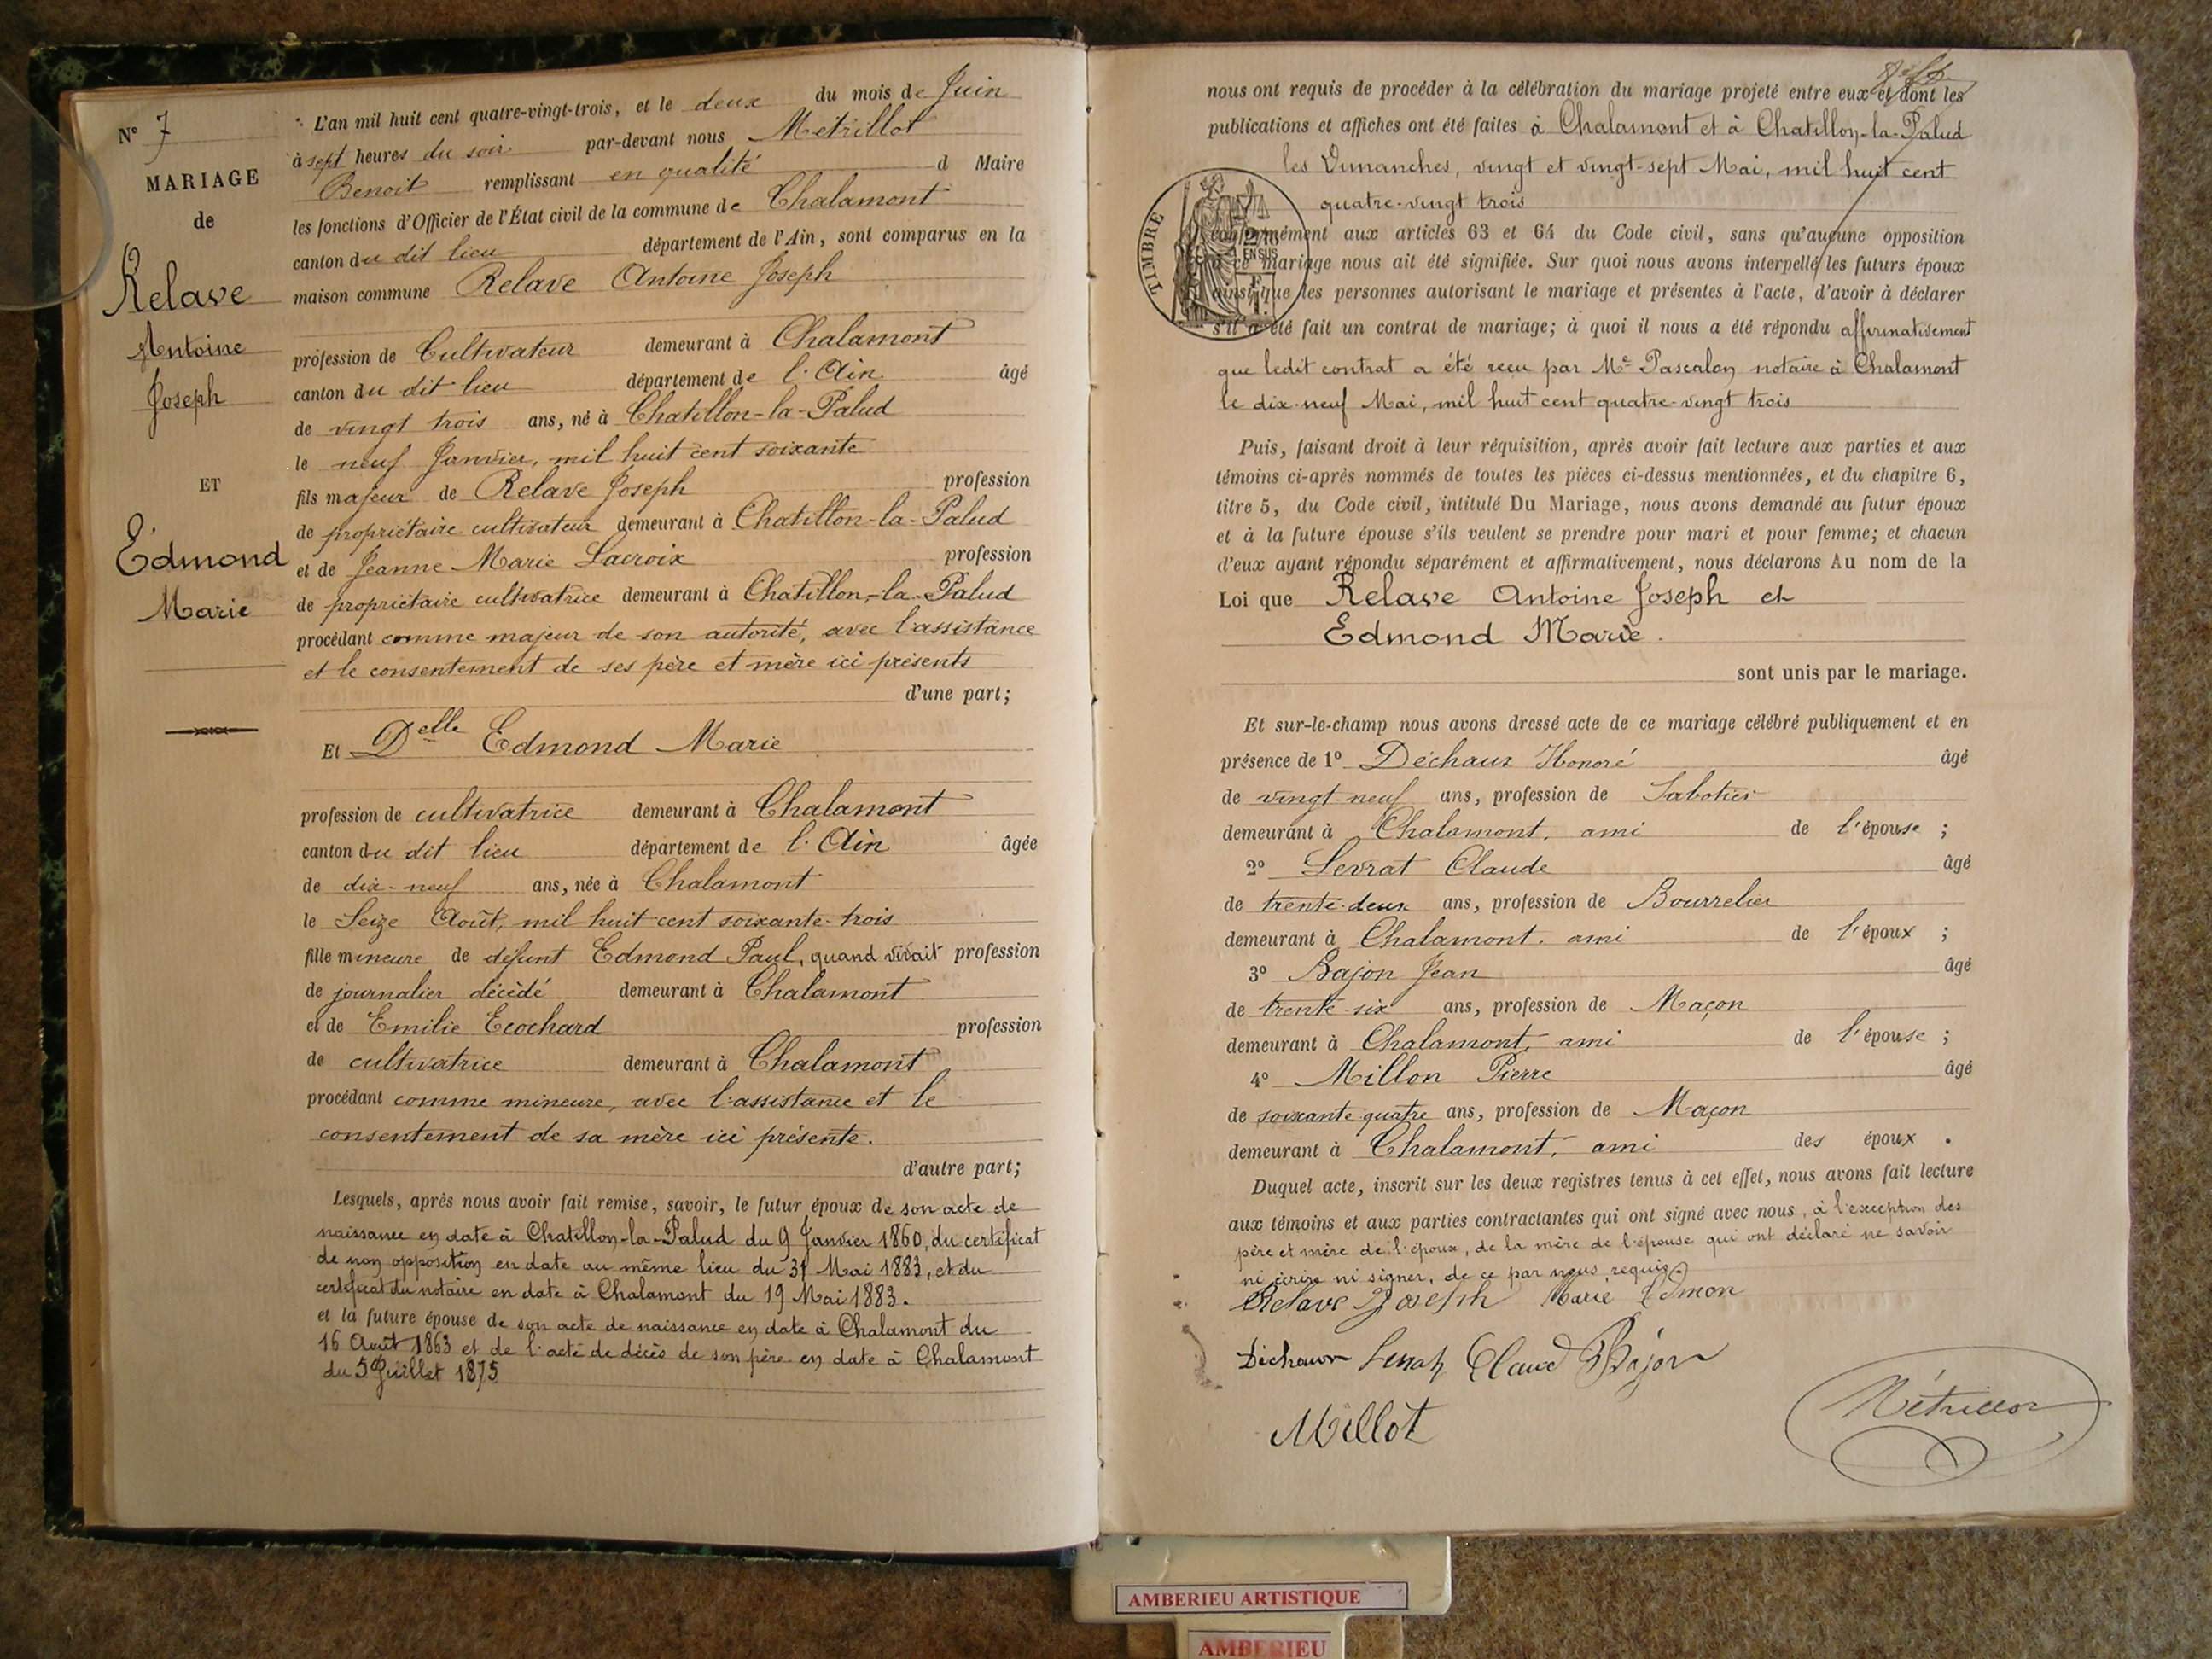 N° 7
MARIAGE
de
Relave
Antoine
Joseph
ET
Edmond
Marie
L'an mil huit cent quatre-vingt-trois, et le deux du mois de Juin
à sept heures du soir par-devant nous Métrillot
Benoit remplissant en qualité d Maire
les fonctions d'Officier de l'État civil de la commune de Chalamont
canton du dit lieu département de l'Ain, sont comparus en la
maison commune Relave Antoine Joseph
profession de Cultivateur demeurant à Chalamont
canton du dit lieu département de l'Ain âgé
de vingt trois ans, né à Chatillon-la-Palud
le neuf Janvier, mil huit cent soixante
fils majeur de Relave Joseph profession
de propriétaire cultivateur demeurant à Chatillon-la-Palud
et de Jeanne Marie Lacroix profession
de propriétaire cultivatrice demeurant à Chatillon-la-Palud
procédant comme majeur de son autorité, avec l'assistance
et le consentement de ses père et mère ici présents
d'une part;
Et Delle Edmond Marie
profession de cultivatrice demeurant à Chalamont
canton du dit lieu département de l'Ain âgée
de dix-neuf ans, née à Chalamont
le Seize Août, mil huit cent soixante-trois
fille mineure de défunt Edmond Paul, quand vivait profession
de journalier décédé demeurant à Chalamont
et de Emilie Ecochard profession
de cultivatrice demeurant à Chalamont
procédant comme mineure, avec l'assistance et le
consentement de sa mère ici présente.
d'autre part;
Lesquels, après nous avoir fait remise, savoir, le futur époux de son acte de
naissance en date à Chatillon-la-Palud du 9 Janvier 1860, du certificat
de non opposition en date au même lieu du 31 Mai 1883, et du
certificat du notaire en date à Chalamont du 19 Mai 1883.
et la future épouse de son acte de naissance en date à Chalamont du
16 Août 1863 et de l'acte de décès de son père en date à Chalamont
du 5 Juillet 1875
nous ont requis de procéder à la célébration du mariage projeté entre eux et dont les
publications et affiches ont été faites à Chalamont et à Chatillon-la-Palud
les Dimanches, vingt et vingt-sept Mai, mil huit cent
quatre-vingt trois
TIMBRE
conformément aux articles 63 et 64 du Code civil, sans qu'aucune opposition
à ce mariage nous ait été signifiée. Sur quoi nous avons interpellé les futurs époux
ainsi que les personnes autorisant le mariage et présentes à l'acte, d'avoir à déclarer
s'il a été fait un contrat de mariage; à quoi il nous a été répondu affirmativement
que ledit contrat a été reçu par Me Pascalon notaire à Chalamont
le dix-neuf Mai, mil huit cent quatre-vingt trois
Puis, faisant droit à leur réquisition, après avoir fait lecture aux parties et aux
témoins ci-après nommés de toutes les pièces ci-dessus mentionnées, et du chapitre 6,
titre 5, du Code civil, intitulé Du Mariage, nous avons demandé au futur époux
et à la future épouse s'ils veulent se prendre pour mari et pour femme; et chacun
d'eux ayant répondu séparément et affirmativement, nous déclarons Au nom de la
Loi que Relave Antoine Joseph et
Edmond Marie.
sont unis par le mariage.
Et sur-le-champ nous avons dressé acte de ce mariage célébré publiquement et en
présence de 1° Déchaux Honoré âgé
de vingt-neuf ans, profession de Sabotier
demeurant à Chalamont, ami de l'épouse;
2° Levrat Claude âgé
de trente-deux ans, profession de Bourrelier
demeurant à Chalamont. ami de l'époux;
3° Bajon Jean âgé
de trente-six ans, profession de Maçon
demeurant à Chalamont, ami de l'épouse;
4° Millon Pierre âgé
de soixante-quatre ans, profession de Maçon
demeurant à Chalamont, ami des époux.
Duquel acte, inscrit sur les deux registres tenus à cet effet, nous avons fait lecture
aux témoins et aux parties contractantes qui ont signé avec nous, à l'exception des
père et mère de l'époux, de la mère de l'épouse qui ont déclaré ne savoir
ni écrire ni signer, de ce par nous requis.
Relave Joseph Marie Edmon
Déchaux Levrat Claud Bajon
Millot
Métrillot
AMBERIEU ARTISTIQUE
AMBERIEU